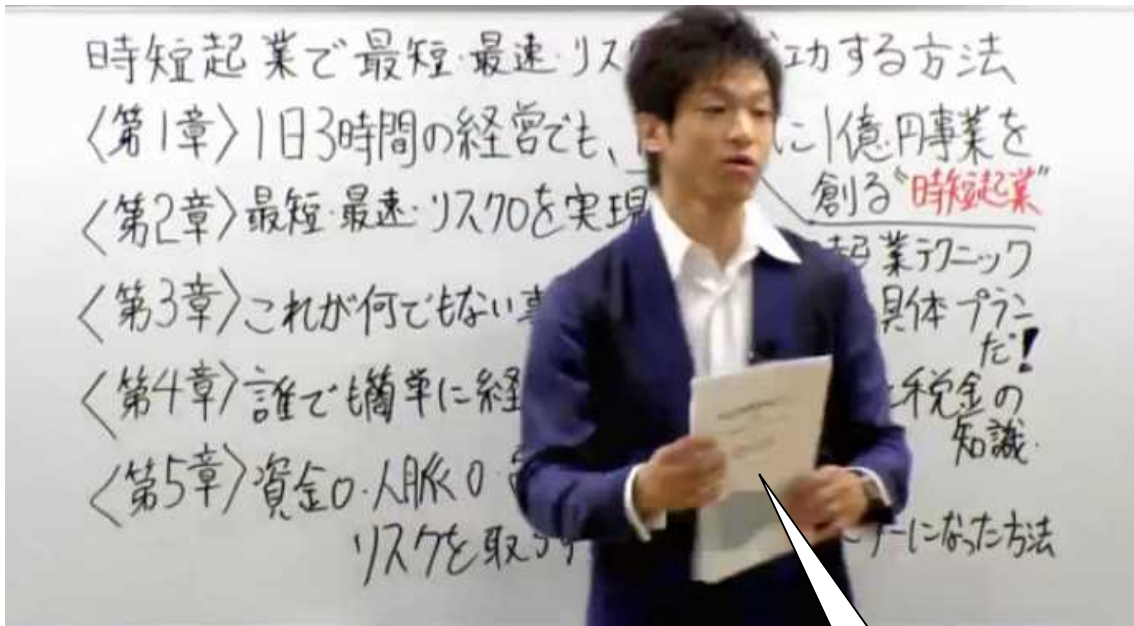 時短起業で最短・最速・リス 功する方法
〈第1章〉1日3時間の経営でも、 に1億円事業を
創る“時短起業”
〈第2章〉最短・最速・リスク0を実現 起業テクニック
〈第3章〉これが何でもない 具体プラン
だ!
〈第4章〉誰でも簡単に経 税金の
知識.
〈第5章〉資金0・人脈0・
リスクを取らず ーになった方法